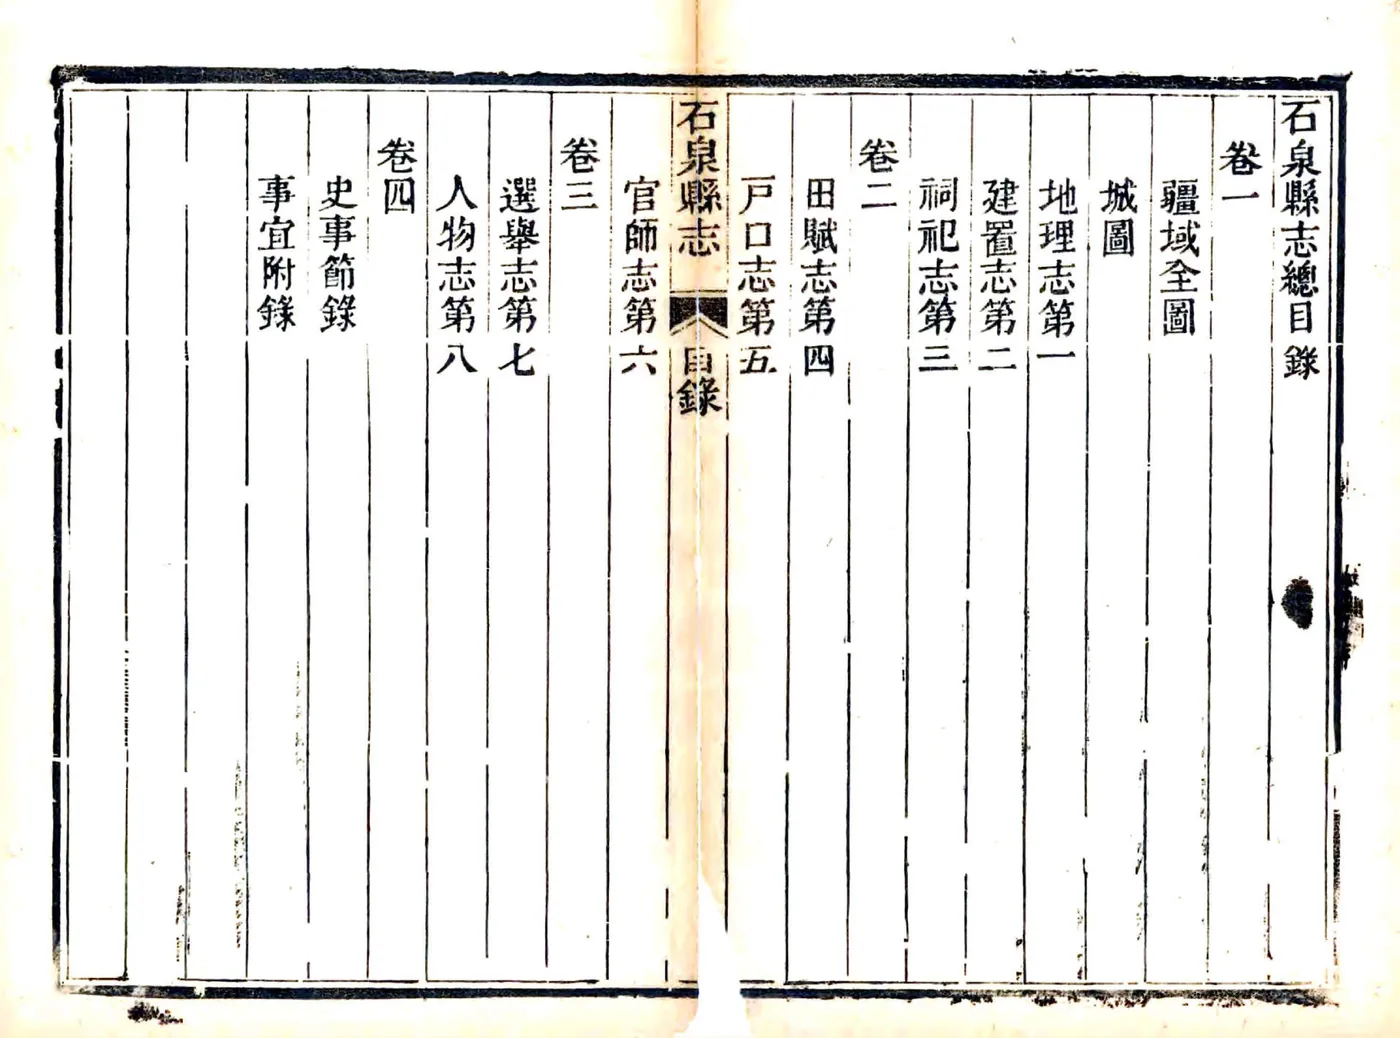 石泉縣志總目錄
卷一
疆域全圖
城圖
地理志第一
建置志第二
祠祀志第三
卷二
田賦志第四
戶口志第五
石泉縣志
目錄
官師志第六
卷三
選舉志第七
人物志第八
卷四
史事節錄
事宜附錄